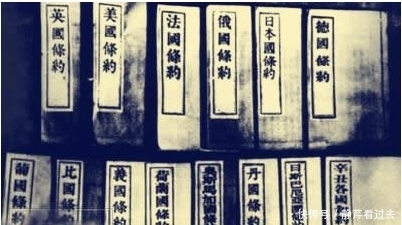 英國條約
美國條約
法國條約
俄國條約
日本國條約
德國條約
葡國條約
比國條約
義國條約
荷蘭國條約
丹國條約
日斯巴尼亞
辛丑各國
快传号/静芹看过去